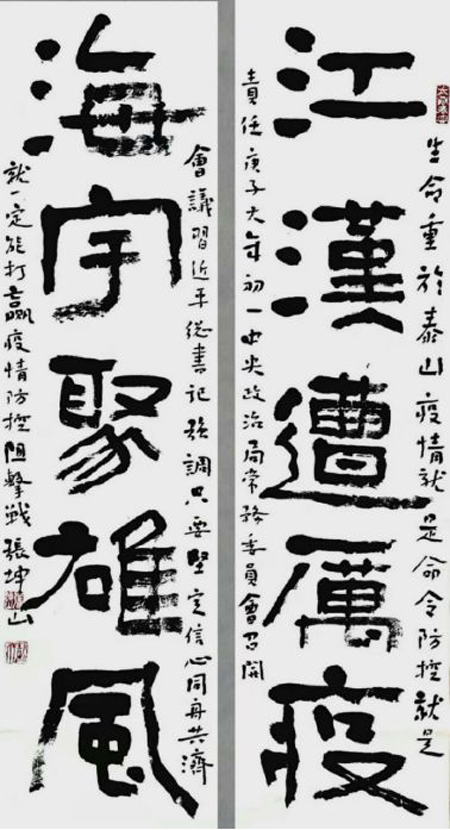 江漢遭厲疫
生命重於泰山疫情就是命令防控就是
責任庚子大年初一中央政治局常務委員會召開
海宇聚雄風
會議習近平總書記強調只要堅定信心同舟共濟
就一定能打贏疫情防控阻擊戰張坤山